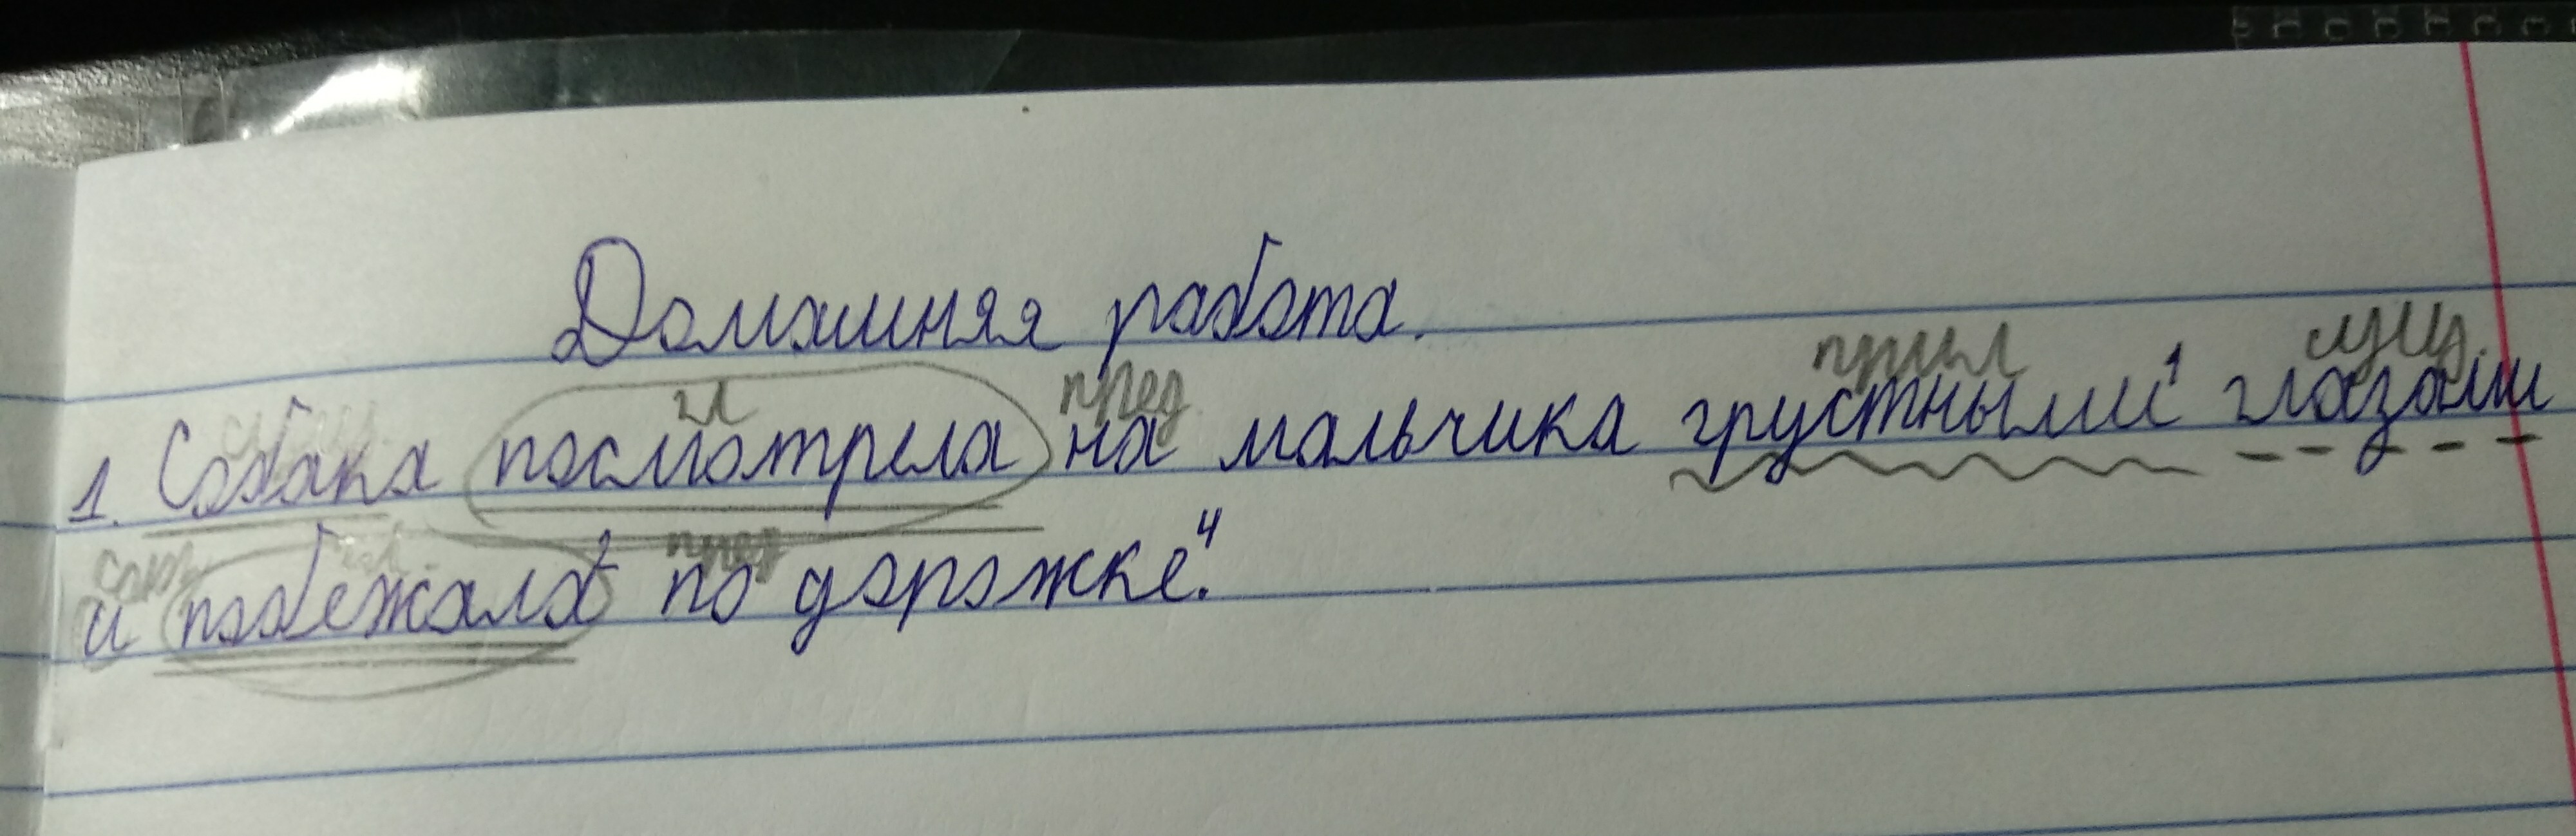 Домашняя работа.
прил сущ.
гл пред
1. Собака посмотрела на мальчика грустными¹ глазами
союз гл. пред
и побежала² по дорожке.⁴